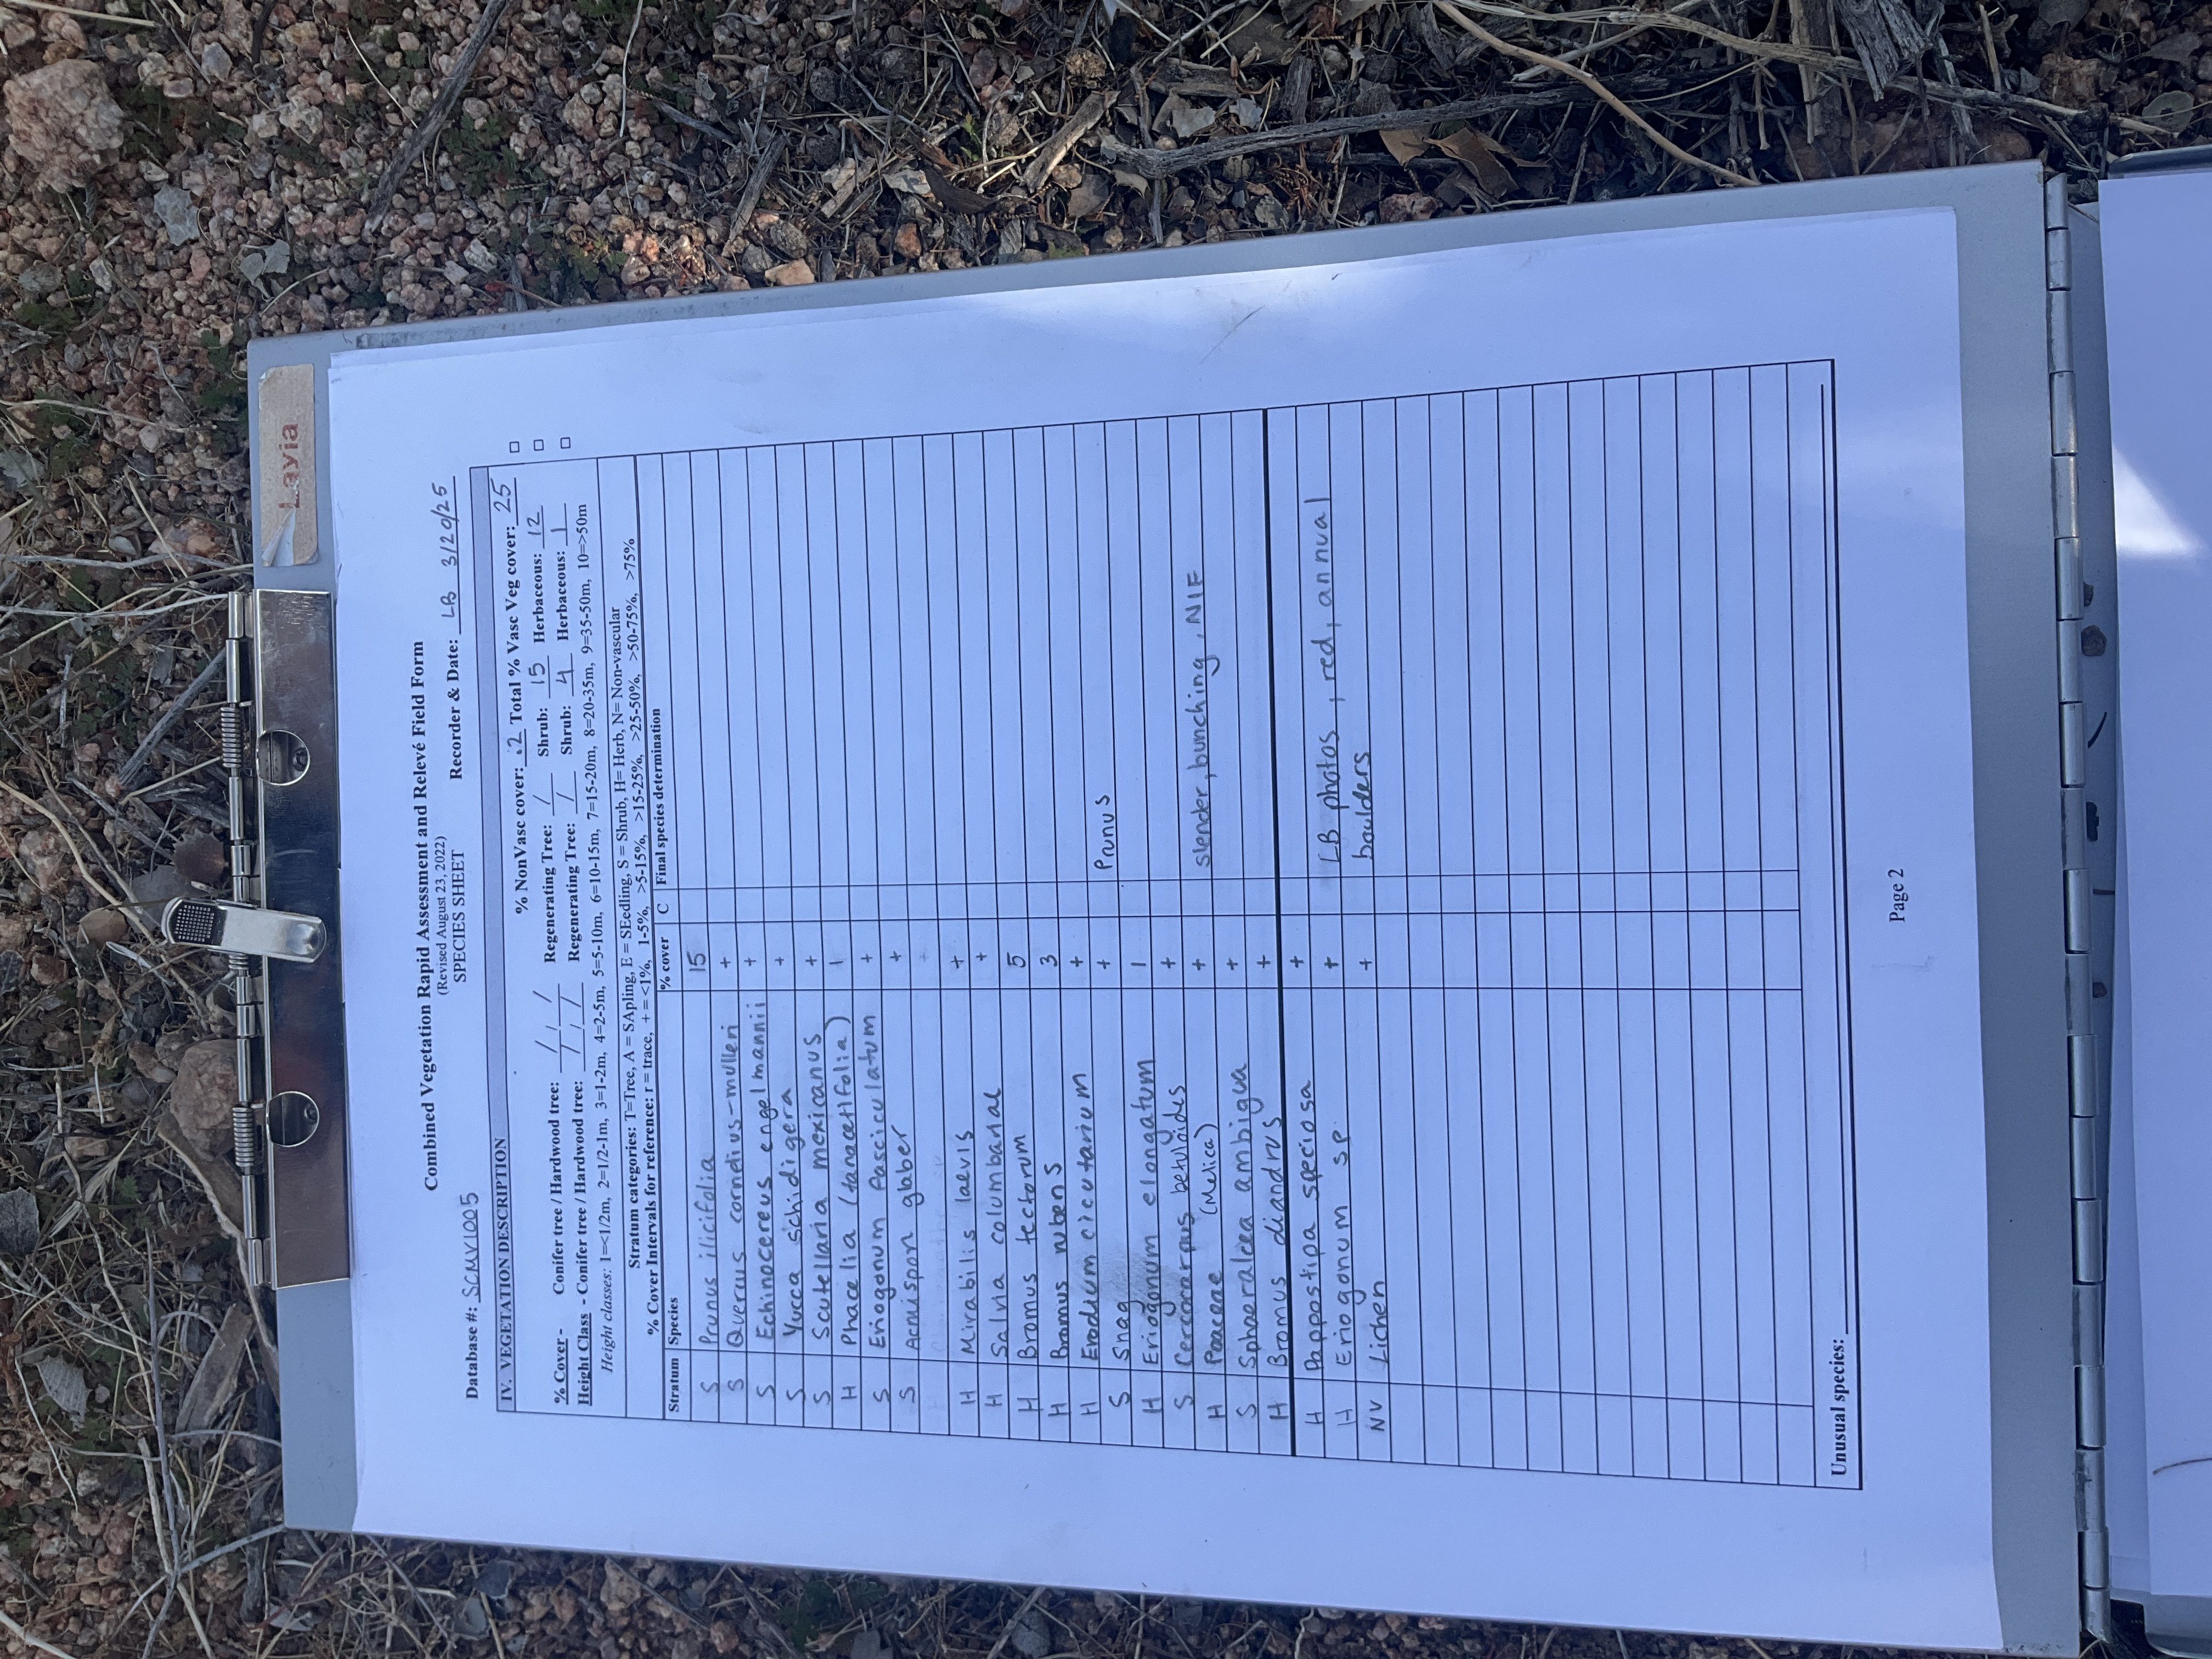 Layia
Combined Vegetation Rapid Assessment and Relevé Field Form
(Revised August 23, 2022)
SPECIES SHEET
Database #: SCMV1005 Recorder & Date: LB 3/20/25
IV. VEGETATION DESCRIPTION
% NonVasc cover: .2 Total % Vasc Veg cover: 25 □
% Cover - Conifer tree / Hardwood tree: / / / Regenerating Tree: / Shrub: 15 Herbaceous: 12 □
Height Class - Conifer tree / Hardwood tree: / / / Regenerating Tree: / Shrub: 4 Herbaceous: 1 □
Height classes: 1=<1/2m, 2=1/2-1m, 3=1-2m, 4=2-5m, 5=5-10m, 6=10-15m, 7=15-20m, 8=20-35m, 9=35-50m, 10=>50m
Stratum categories: T=Tree, A = SApling, E = SEedling, S = Shrub, H= Herb, N= Non-vascular
% Cover Intervals for reference: r = trace, + = <1%, 1-5%, >5-15%, >15-25%, >25-50%, >50-75%, >75%
Stratum Species % cover C Final species determination
S Prunus ilicifolia 15
S Quercus cornelius-mulleri +
S Echinocereus engelmannii +
S Yucca schidigera +
S Scutellaria mexicanus +
H Phacelia (tanacetifolia) 1
S Eriogonum fasciculatum +
S Acmispon glaber +
H Mirabilis laevis +
H Salvia columbariae +
H Bromus tectorum 5
H Bromus rubens 3
H Erodium cicutarium +
S Snag + Prunus
H Eriogonum elongatum 1
S Cercocarpus betuloides +
H Poaceae (Melica) + slender, bunching, NIF
S Sphaeralcea ambigua +
H Bromus diandrus +
H Pappostipa speciosa +
H Eriogonum sp. + LB photos, red, annual
NV Lichen + boulders
Unusual species:
Page 2